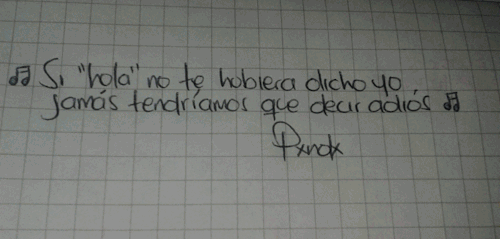 ♫ Si "hola" no te hobiera dicho yo,
jamás tendríamos que decir adiós ♫
Pxndx